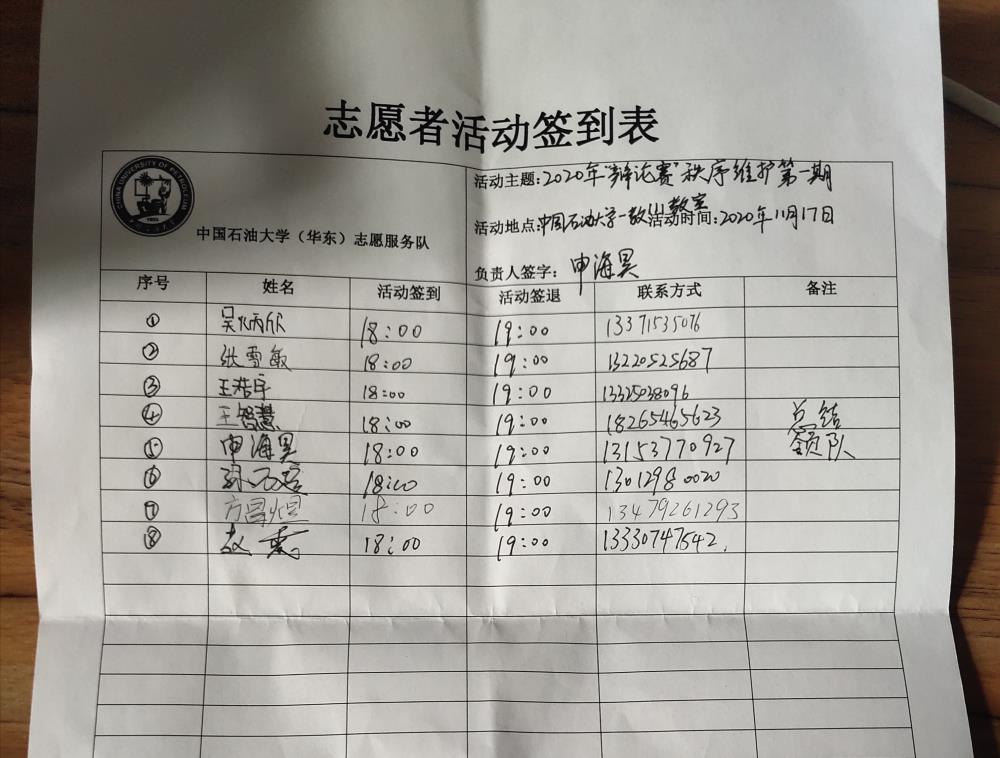 志愿者活动签到表
CHINA UNIVERSITY OF PETROLEUM
中国石油大学（华东）志愿服务队
活动主题：2020年"辩论赛"秩序维护第一期
活动地点：中国石油大学一教 教室 活动时间：2020年11月17日
负责人签字：申海昊
序号 姓名 活动签到 活动签退 联系方式 备注
① 吴炳欣 18:00 19:00 13371535076
② 张雪敏 18:00 19:00 13220525687
③ 王浩宇 18:00 19:00 13325038096
④ 王智慧 18:00 19:00 18265465623 总结
⑤ 申海昊 18:00 19:00 13153770927 领队
⑥ 18:00 19:00 13012980020
⑦ 方冒烜 18:00 19:00 13479261293
⑧ 赵 18:00 19:00 13330747542